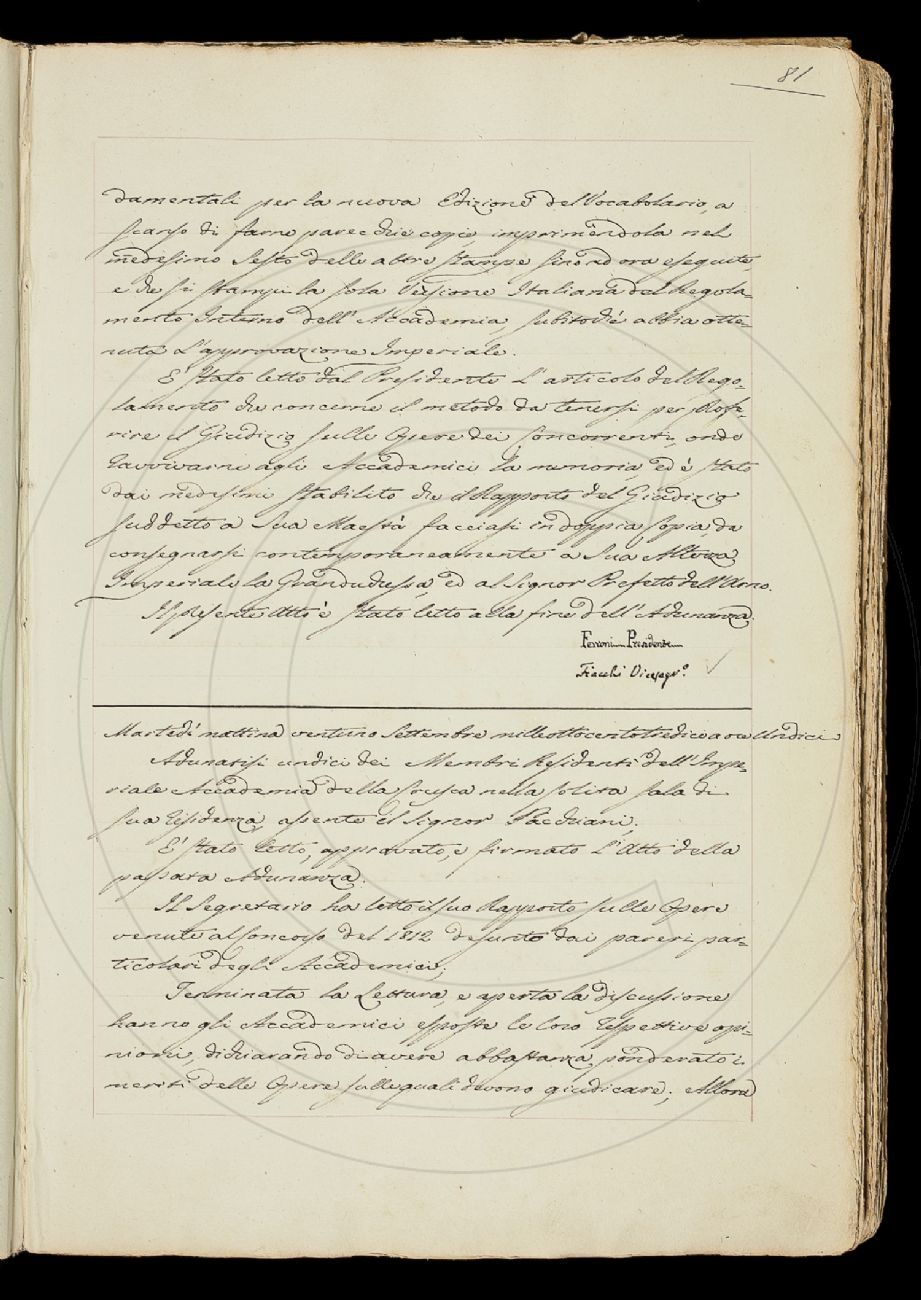 81
damentali per la nuova Edizione del Vocabolario, a
scarso di farne parecchie copie, imprimendola nel
medesimo sesto delle altre stampe sino ad ora eseguite,
e che si stampi la sola Versione Italiana del Regola-
mento Interno dell'Accademia, subitochè abbia otte-
nuta l'approvazione Imperiale.
E' stato letto dal Presidente l'articolo del Rego-
lamento che concerne il metodo da tenersi per profe-
rire il Giudizio sulle Opere dei Concorrenti, onde
ravvivarne agli Accademici la memoria, ed è stato
dai medesimi stabilito che il Rapporto del Giudizio
suddetto a Sua Maestà facciasi in doppia Copia, da
consegnarsi contemporaneamente a Sua Altezza
Imperiale la Granduchessa, ed al Signor Prefetto dell'Arno.
Il presente Atto è stato letto alla fine dell'Adunanza.
Ferroni Presidente
Fiacchi Vicesegr.º
Martedì mattina ventuno Settembre milleottocentotredici a ore Undici
Adunatisi undici dei Membri Residenti dell'Impe-
riale Accademia della Crusca nella solita sala di
sua residenza, assente il Signor Pacchiani,
E' stato letto, approvato, e firmato l'Atto della
passata Adunanza.
Il Segretario ha letto il suo Rapporto sulle Opere
venute al Concorso del 1812 desunto dai pareri par-
ticolari degli Accademici;
Terminata la Lettura, e aperta la discussione
hanno gli Accademici esposte le loro respettive opi-
nioni, dichiarando di avere abbastanza ponderato i
meriti delle Opere sulle quali devono giudicare; Allora